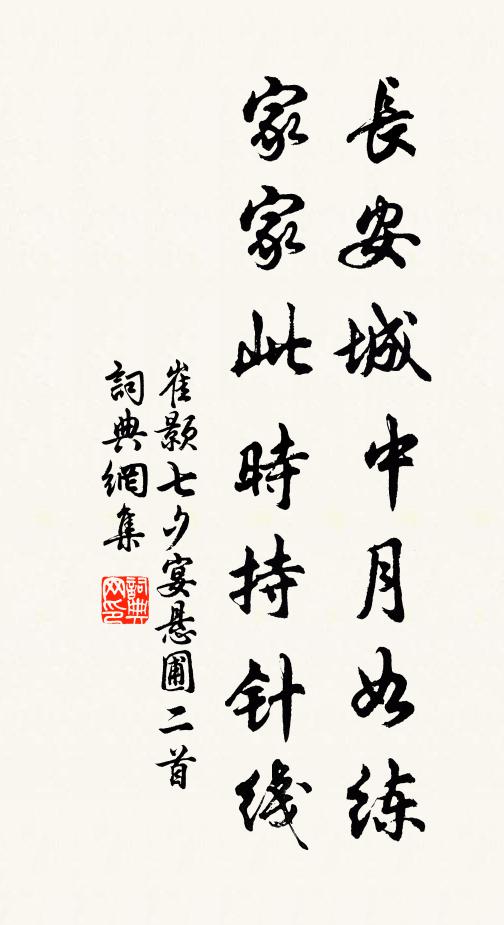 長安城中月如练
家家此時持针线
崔颢七夕宴悬圃二首
詞典網集
詞典网印